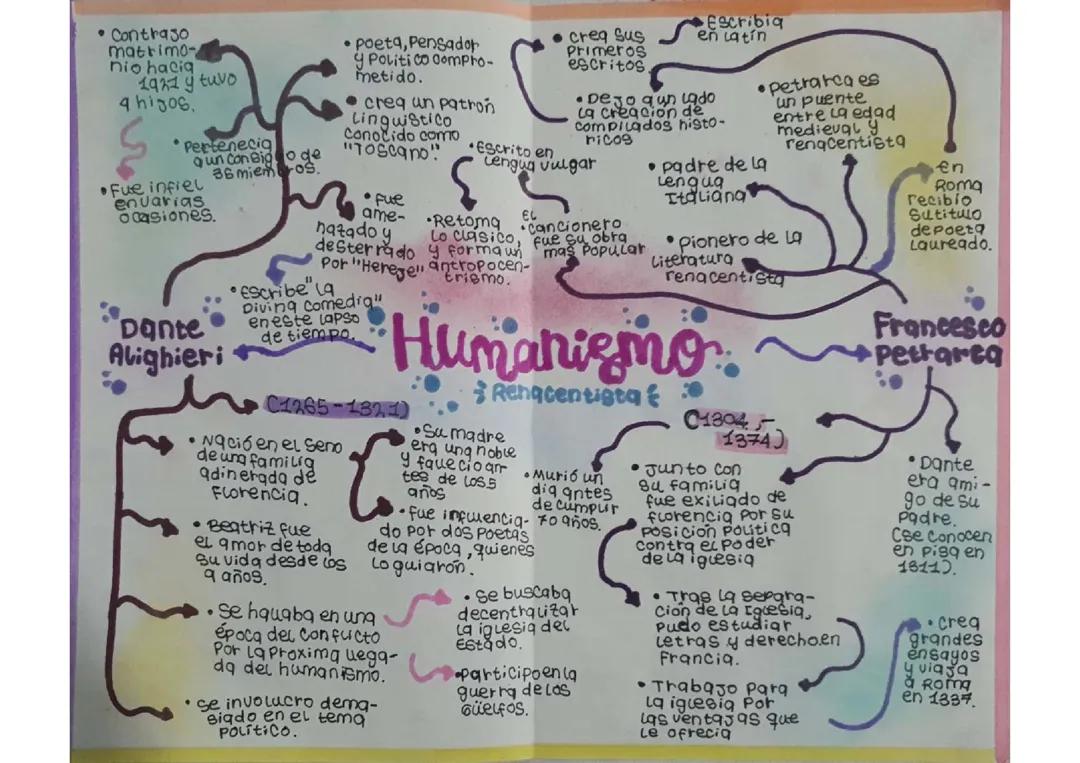 • Contrajo
matrimo-
nio hacia
1921 y tuvo
4 hijos.
• Pertenecia
a un consig  o de
36 miembros.
• Fue infiel
en varias
ocasiones.
• poeta, Pensador
y Politico compro-
metido.
• crea un patron
Linguistico
conocido como
"Toscano".
• Fue
ame-
nazado y
desterrado
Por "Hereje"
• Escribe "La
Divina comedia"
en este lapso
de tiempo.
• Escrito en
Lengua vulgar
• Retoma
Lo clasico,
y forma un
antropocen-
trismo.
El
• Cancionero
fue su obra
mas Popular
• crea sus
Primeros
escritos
• Escribia
en latin
• Dejo a un lado
la creacion de
compilados histo-
ricos
• petrarca es
un puente
entre la edad
medieval y
renacentista
• padre de la
Lengua
Italiana
• pionero de la
Literatura
renacentista
• En
Roma
recibio
su titulo
de poeta
Laureado.
Dante
Alighieri
Humanismo
Renacentista
Francesco
Petrarca
(1265-1321)
• Nació en el seno
de una familia
adinerada de
Florencia.
• Beatriz fue
el amor de toda
su vida desde los
9 años.
• Se hallaba en una
época del conflicto
Por la proxima llega-
da del humanismo.
• se involucro dema-
siado en el tema
político.
• Su madre
era una noble
y fallecio an
tes de los 5
años
• fue influencia-
do por dos poetas
de la época, quienes
Lo guiaron.
• Se buscaba
decentralizar
la iglesia del
Estado.
• participo en la
guerra de los
Güelfos.
(1304,-
1374)
• Murió un
dia antes
de cumplir
70 años.
• Junto con
su familia
fue exiliado de
florencia por su
posición Política
contra el Poder
de la iglesia
• Tras la separa-
ción de la Iglesia,
pudo estudiar
letras y derecho en
Francia.
• Trabajo para
la iglesia Por
las ventajas que
le ofrecia
• Dante
era ami-
go de su
Padre.
(se conocen
en Pisa en
1311).
• Crea
grandes
ensayos
y viaja
a Roma
en 1337.